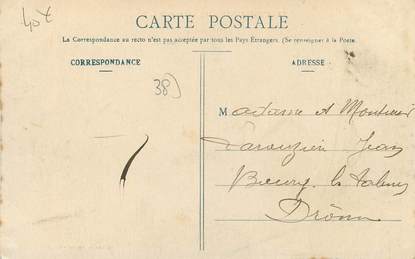 40x
CARTE POSTALE
La Correspondance au recto n'est pas acceptée par tous les Pays Étrangers. (Se renseigner à la Poste.
CORRESPONDANCE
ADRESSE
38)
Madame et Monsieur
Jean
Bourg les Valence
Drôme